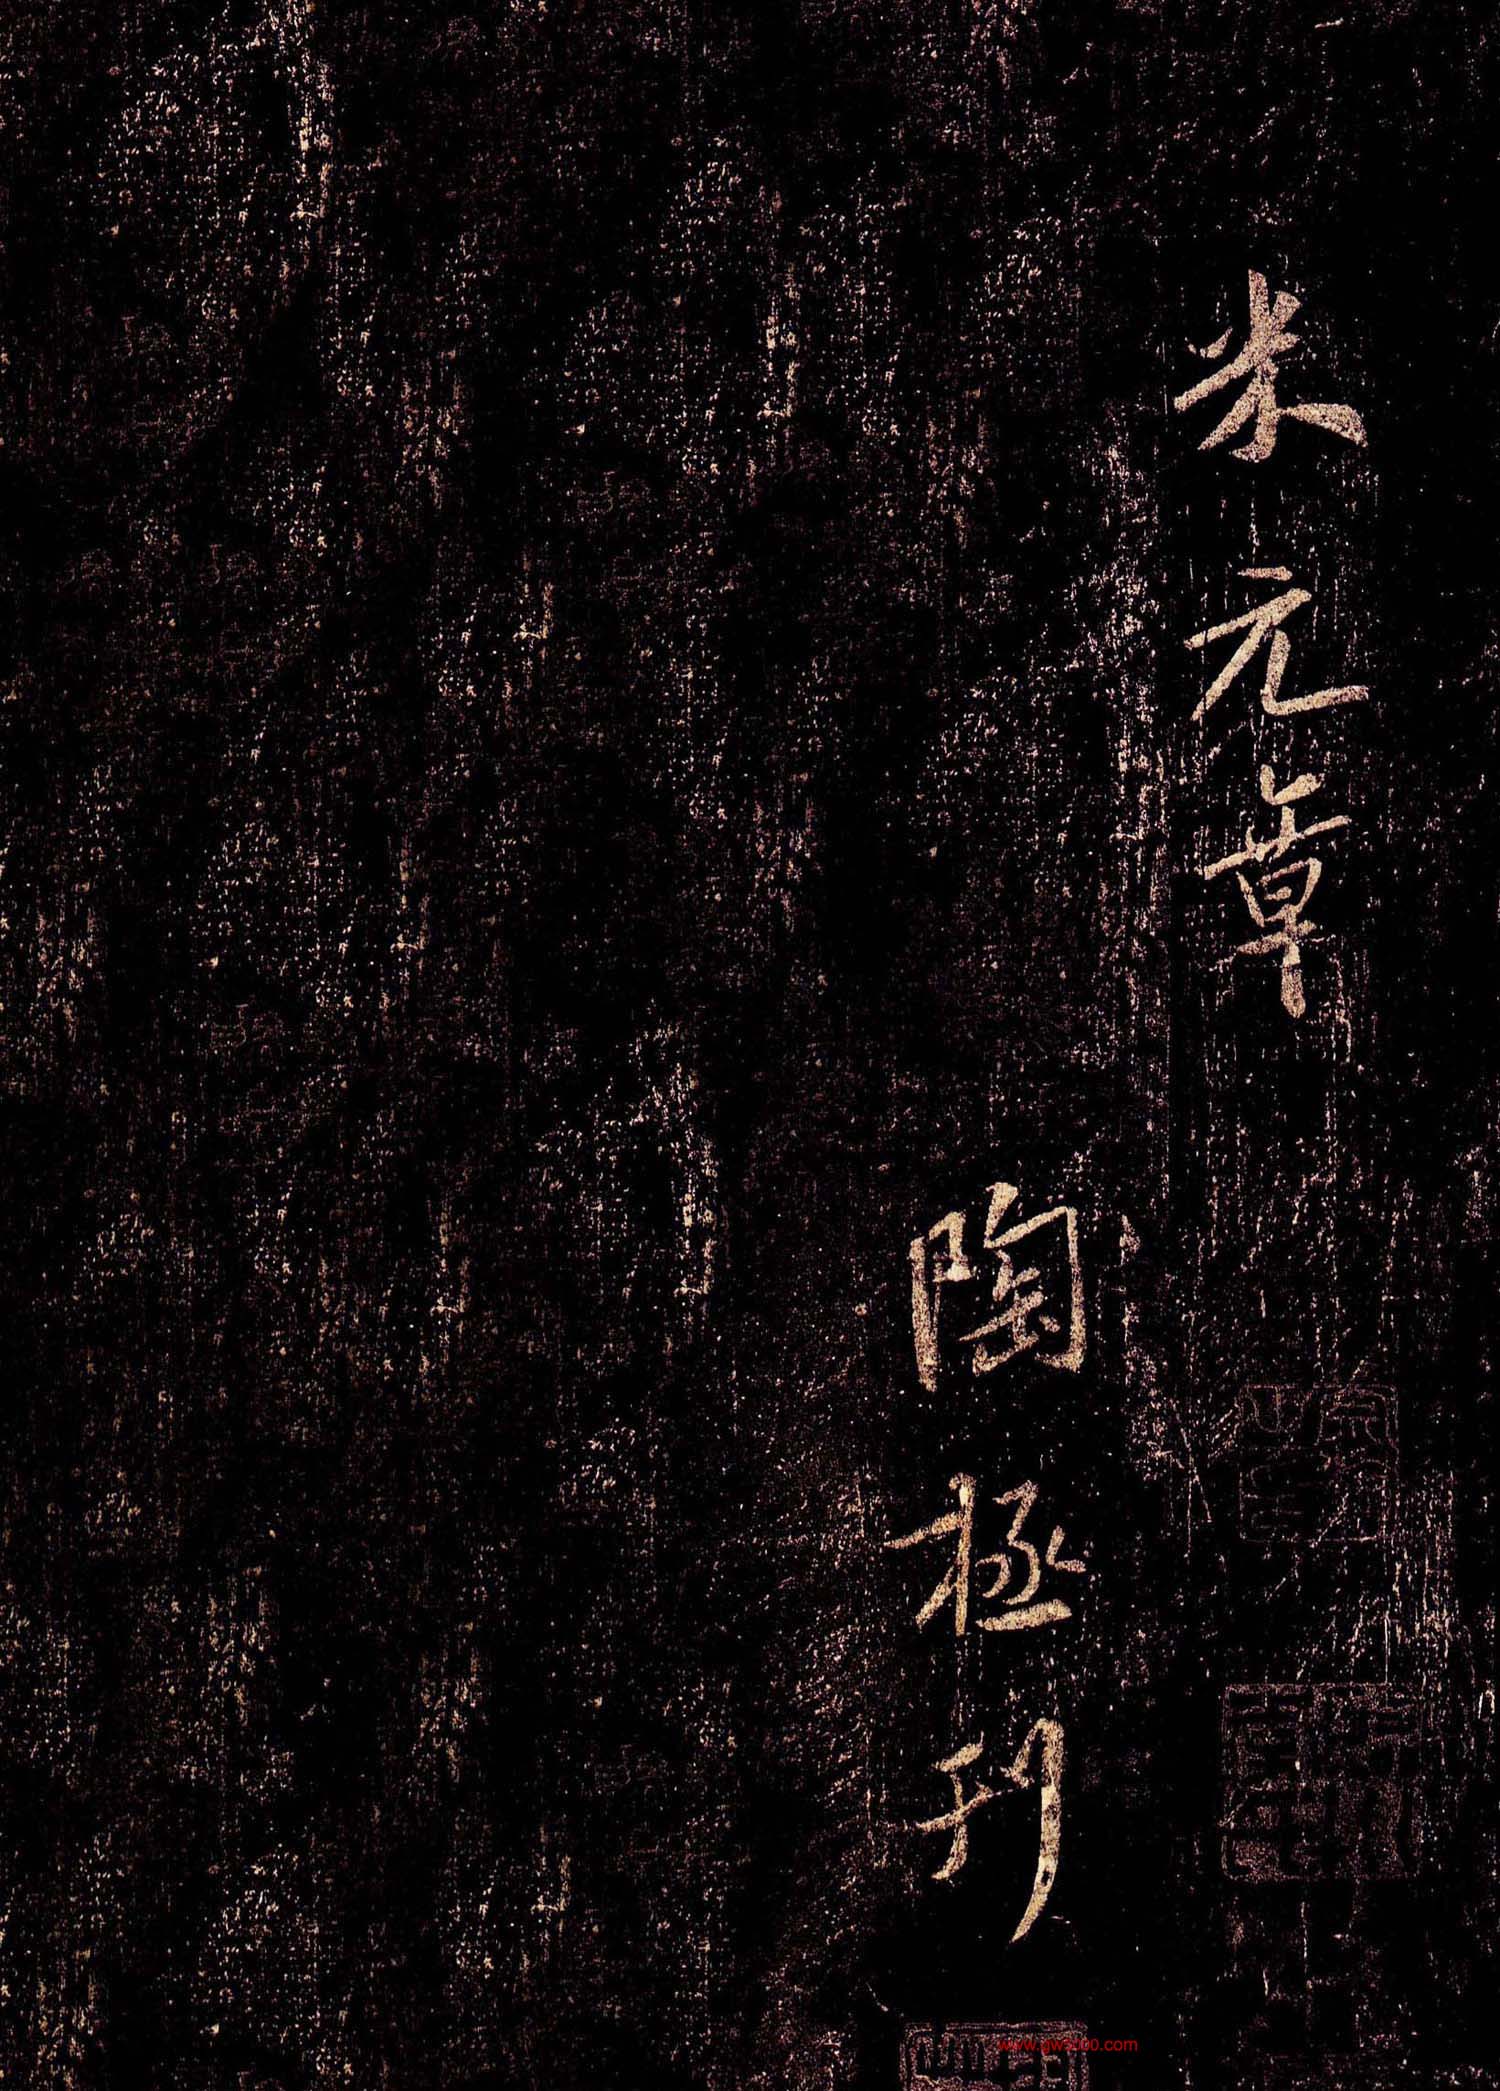 米元章
陶極刋
www.gw5000.com